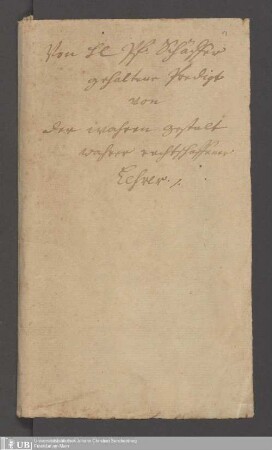 Von H. Pf. Schäffer
gehaltene Predigt
von
der wahren gestalt
wahrer rechtschaffener
Lehrer.
UBJ
Universitätsbibliothek Johann Christian Senckenberg
Frankfurt am Main